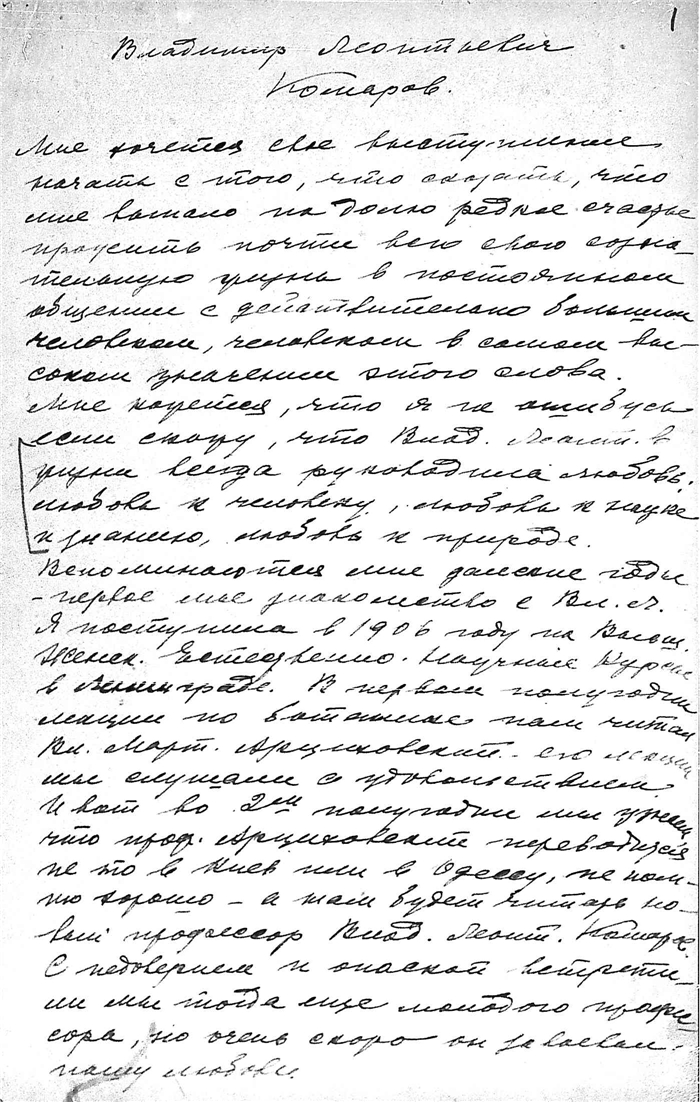 1
Владимир Леонтьевич
Комаров.
Мне хочется свое выступление
начать с того, что сказать, что
мне выпало на долю редкое счастье
прожить почти всю свою созна-
тельную жизнь в постоянном
общении с действительно большим
человеком, человеком в самом вы-
соком значении этого слова.
Мне кажется, что я не ошибусь
если скажу, что Влад. Леонт. в
жизни всегда руководила любовь:
любовь к человеку, любовь к науке
и знанию, любовь к природе.
Вспоминаются мне далекие годы
- первое мое знакомство с Вл. Л.
Я поступила в 1906 году на Высш.
Женск. Естествено. Научные Курсы
в Ленинграде. В первом полугодии
лекции по ботанике нам читал
Вл. Март. Арциховский - его лекции
мы слушали с удовольствием
И вот во 2ом полугодии мы узнаем
что проф. Арциховский переводится
не то в Киев или в Одессу, не пом-
ню хорошо - а нам будет читать но-
вый профессор Влад. Леонт. Комаров.
С недоверием и опаской встрети-
ли мы тогда еще молодого профес-
сора, но очень скоро он завоевал
нашу любовь.